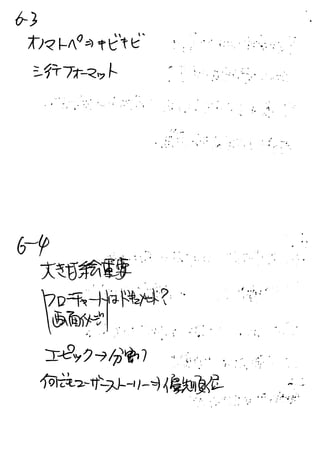 6-3
オノマトペ⇒キビキビ
三行フォーマット
6-4
大きな絵重要
フローチャートはドキュメント?
画面イメージ
エピック→分割
何でもユーザーストーリー⇒優先順位